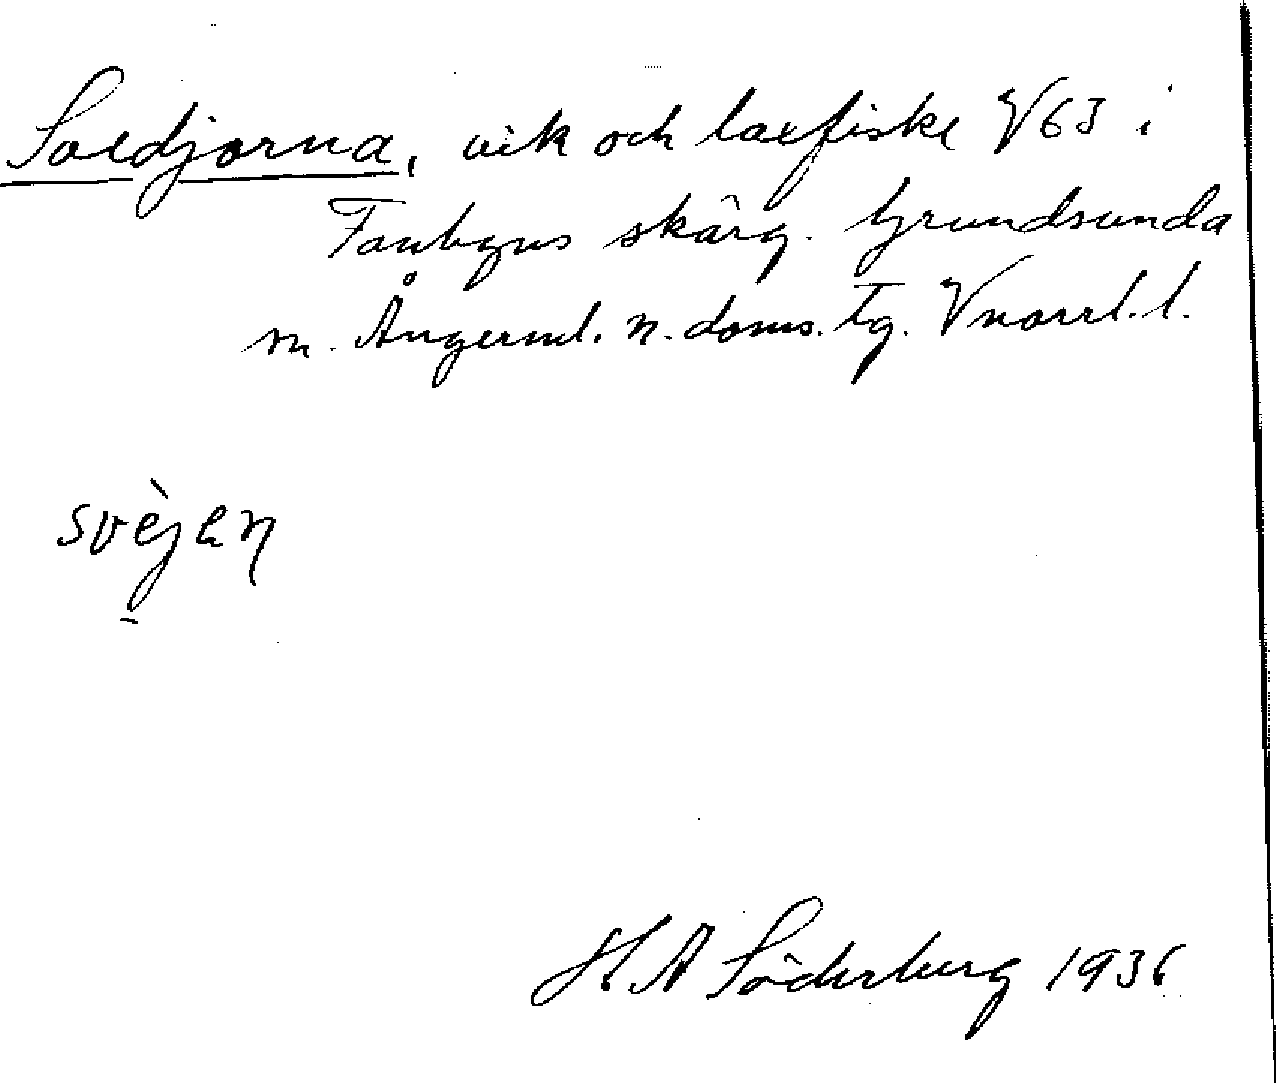 Svedjorna, vik och laxfiske V63 i
Fanbyns skärg. Grundsunda
sn. Ångerml. n. doms. tg. Vnorrl. l.
svèjen
H A Söderberg 1936